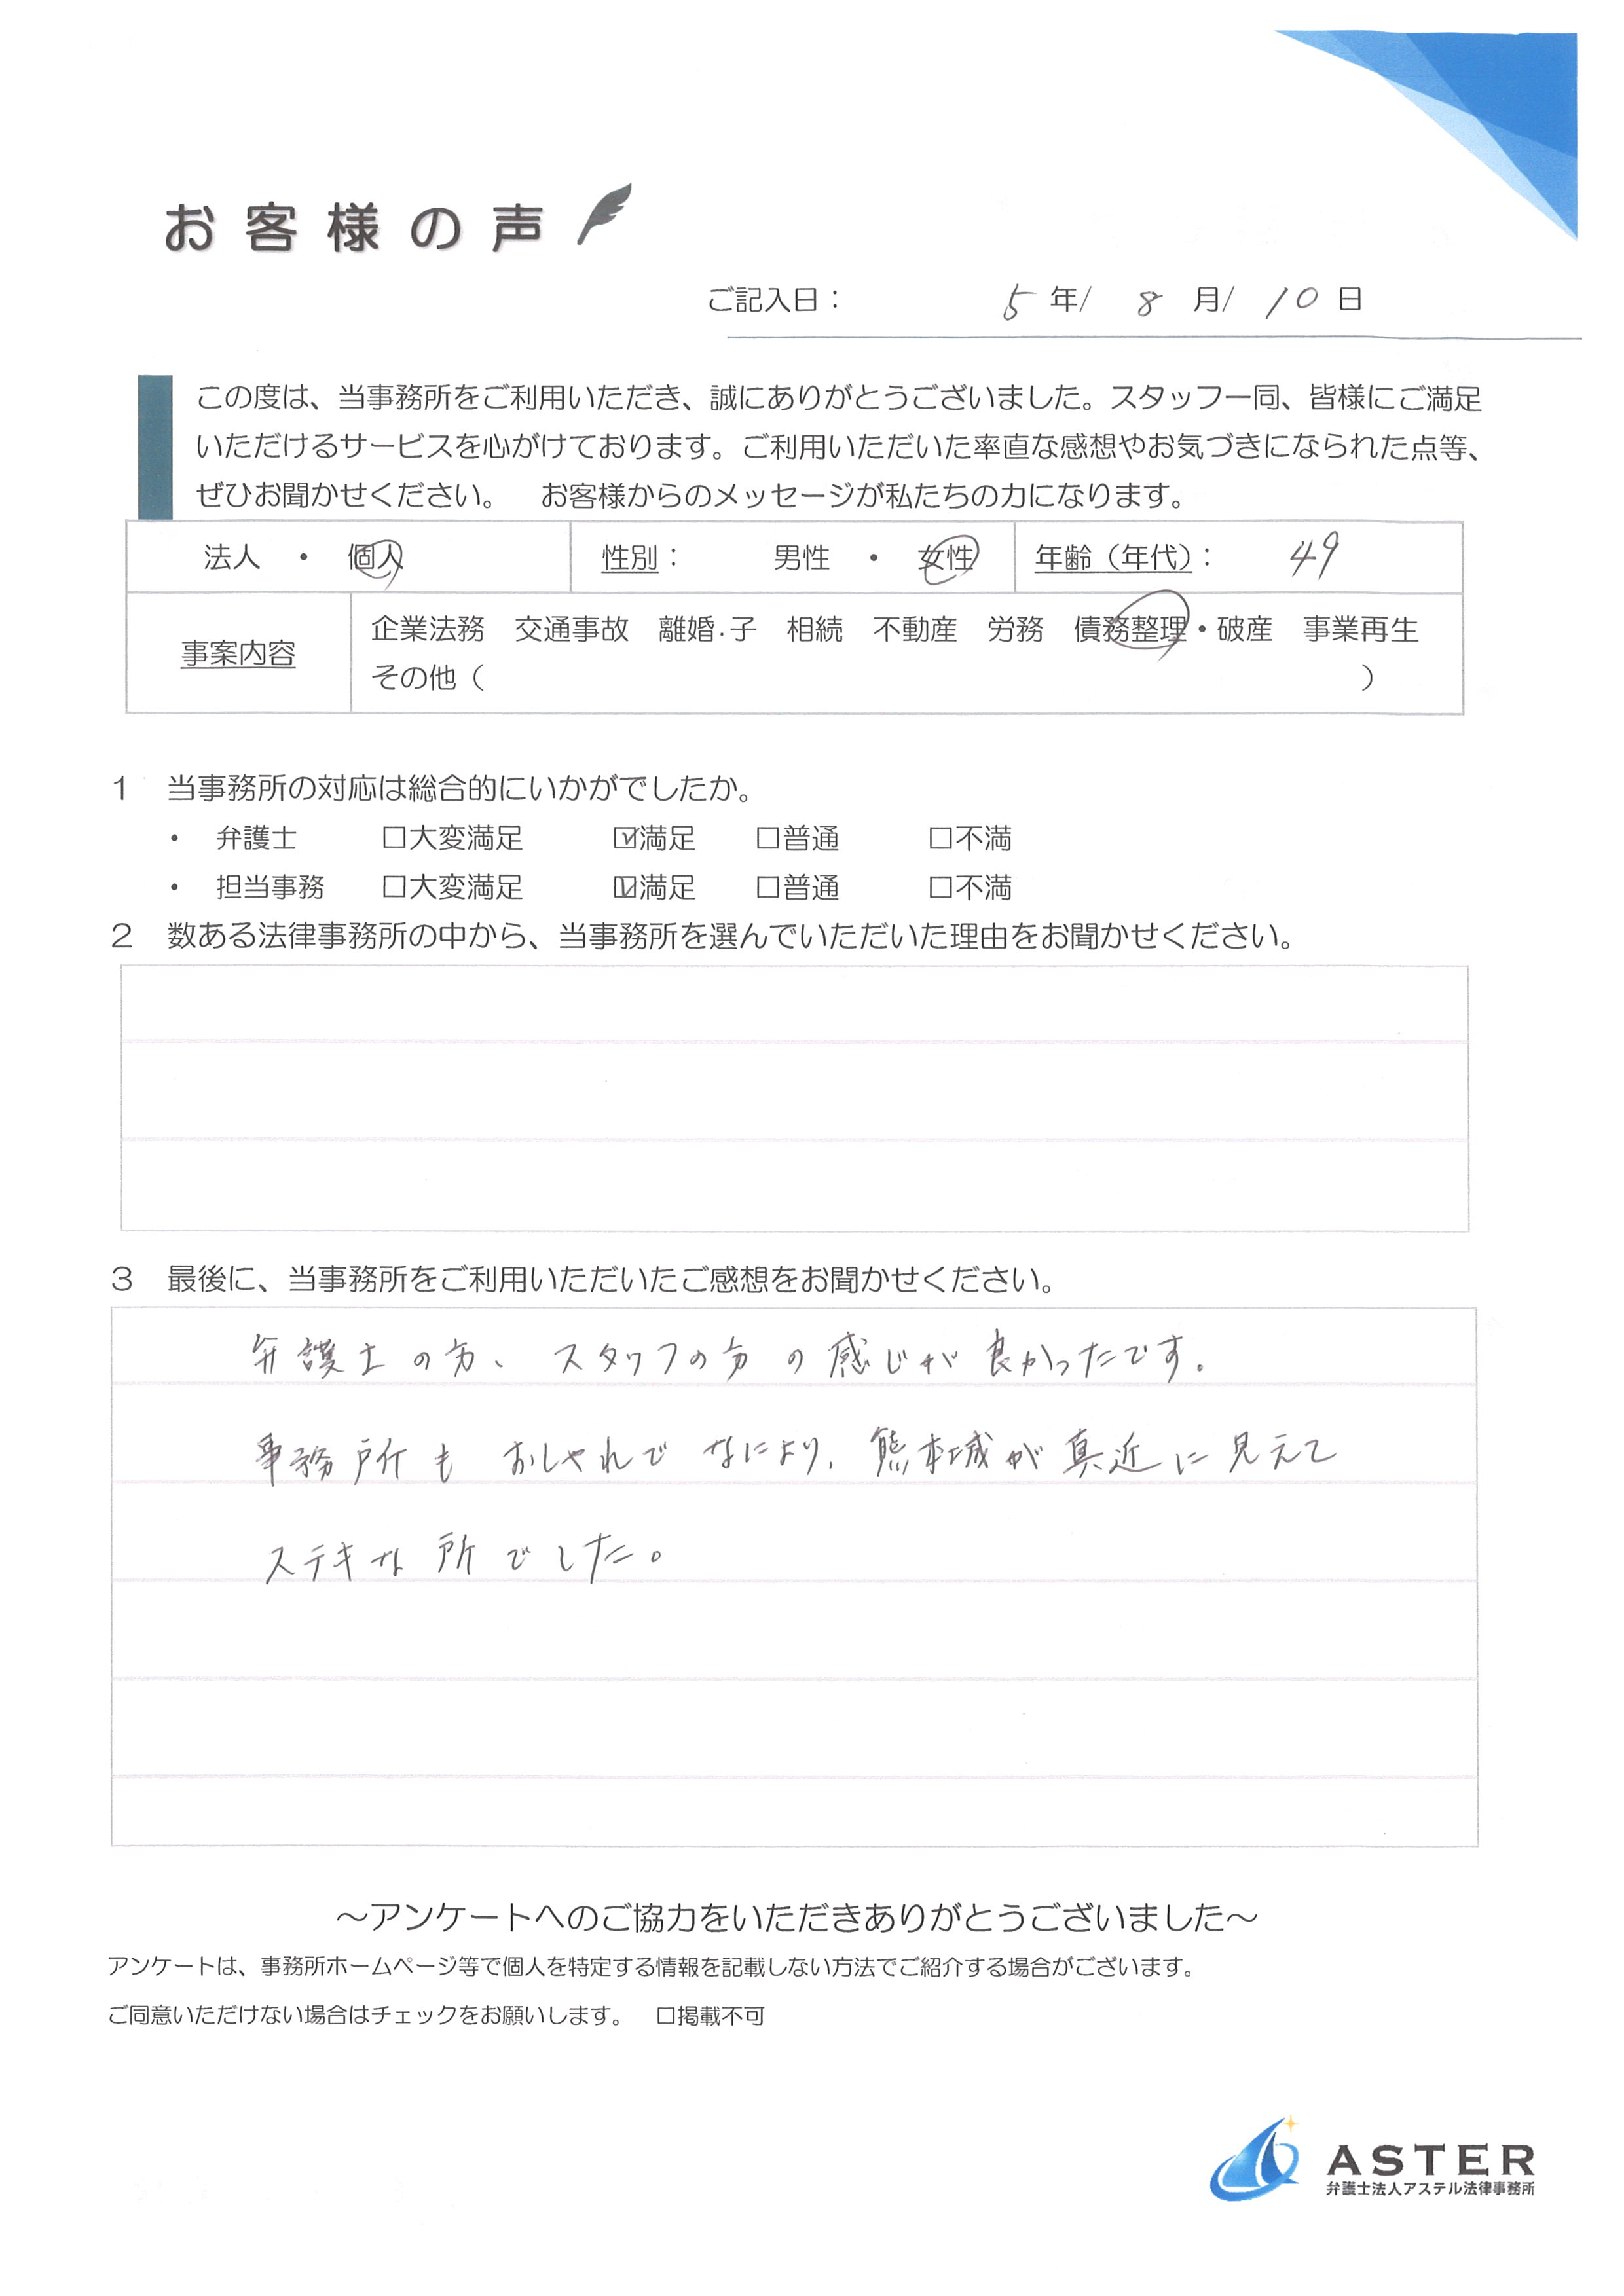 お客様の声
ご記入日： 5年/ 8月/ 10日
この度は、当事務所をご利用いただき、誠にありがとうございました。スタッフ一同、皆様にご満足
いただけるサービスを心がけております。ご利用いただいた率直な感想やお気づきになられた点等、
ぜひお聞かせください。　お客様からのメッセージが私たちの力になります。
法人 ・ 個人 性別： 男性 ・ 女性 年齢（年代）： 49
事案内容
企業法務 交通事故 離婚・子 相続 不動産 労務 債務整理・破産 事業再生
その他（ ）
1 当事務所の対応は総合的にいかがでしたか。
・ 弁護士 □大変満足 ☑満足 □普通 □不満
・ 担当事務 □大変満足 ☑満足 □普通 □不満
2 数ある法律事務所の中から、当事務所を選んでいただいた理由をお聞かせください。
3 最後に、当事務所をご利用いただいたご感想をお聞かせください。
弁護士の方、スタッフの方の感じが良かったです。
事務所もおしゃれでなにより、熊本城が真近に見えて
ステキな所でした。
～アンケートへのご協力をいただきありがとうございました～
アンケートは、事務所ホームページ等で個人を特定する情報を記載しない方法でご紹介する場合がございます。
ご同意いただけない場合はチェックをお願いします。 □掲載不可
ASTER
弁護士法人アステル法律事務所